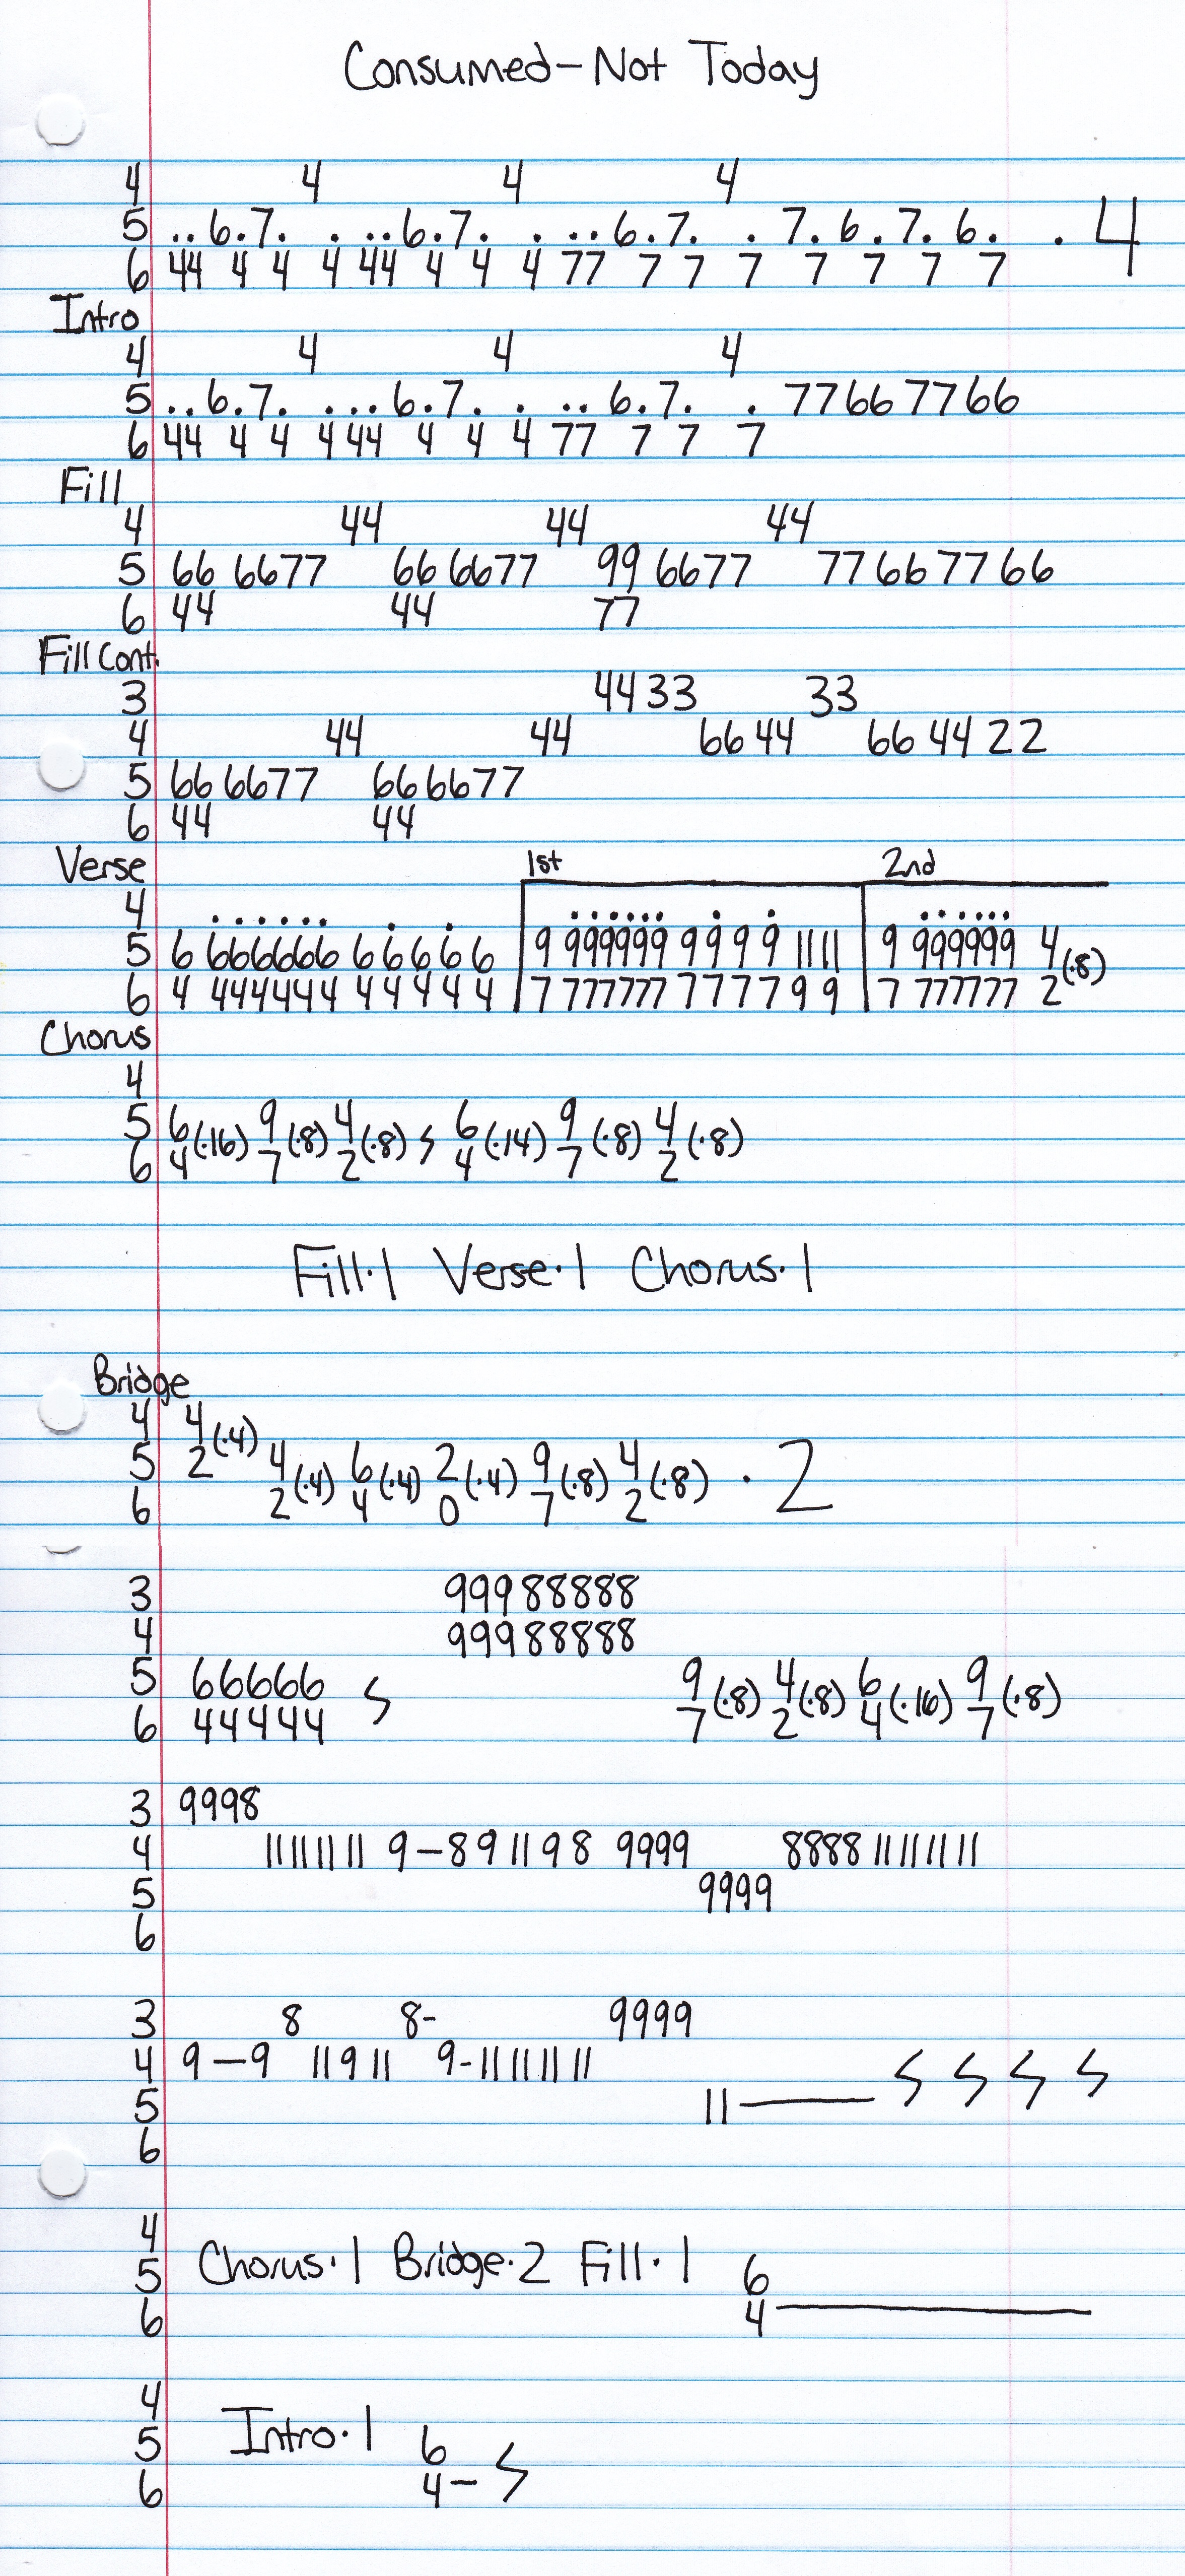 Consumed-Not Today
4 4 4 4
5 ..6.7. . ..6.7. . ..6.7. . 7.6.7.6. .4
6 44 4 4 4 44 4 4 4 77 7 7 7 7 7 7 7
Intro
4 4 4 4
5 ..6.7. ...6.7. . ..6.7. . 77667766
6 44 4 4 4 44 4 4 4 77 7 7 7
Fill
4 44 44 44
5 66 6677 66 6677 99 6677 77667766
6 44 44 77
Fill Cont.
3 4433 33
4 44 44 6644 664422
5 66 6677 66 6677
6 44 44
Verse 1st 2nd
4 ...... . . ...... . . ......
5 6 666666 6 6 6 6 6 9 999999 9 9 9 9 11 11 9 999999 4
6 4 444444 4 4 4 4 4 7 777777 7 7 7 7 9 9 7 777777 2 (·8)
Chorus
4
5 6(·16) 9(·8) 4(·8) 𝄽 6(·14) 9(·8) 4(·8)
6 4 7 2 4 7 2
Fill·1 Verse·1 Chorus·1
Bridge
4 4(·4)
5 2 4(·4) 6(·4) 2(·4) 9(·8) 4(·8) ·2
6 2 4 0 7 2
3 99988888
4 99988888
5 66666 𝄽 9(·8) 4(·8) 6(·16) 9(·8)
6 44444 7 2 4 7
3 9998
4 11 11 11 11 9-8 9 11 9 8 9999 8888 11 11 11 11
5 9999
6
3 8 8- 9999
4 9-9 11 9 11 9-11 11 11 11
5 11— 𝄽 𝄽 𝄽 𝄽
6
4
5 Chorus·1 Bridge·2 Fill·1 6
6 4—
4
5 Intro·1 6
6 4- 𝄽